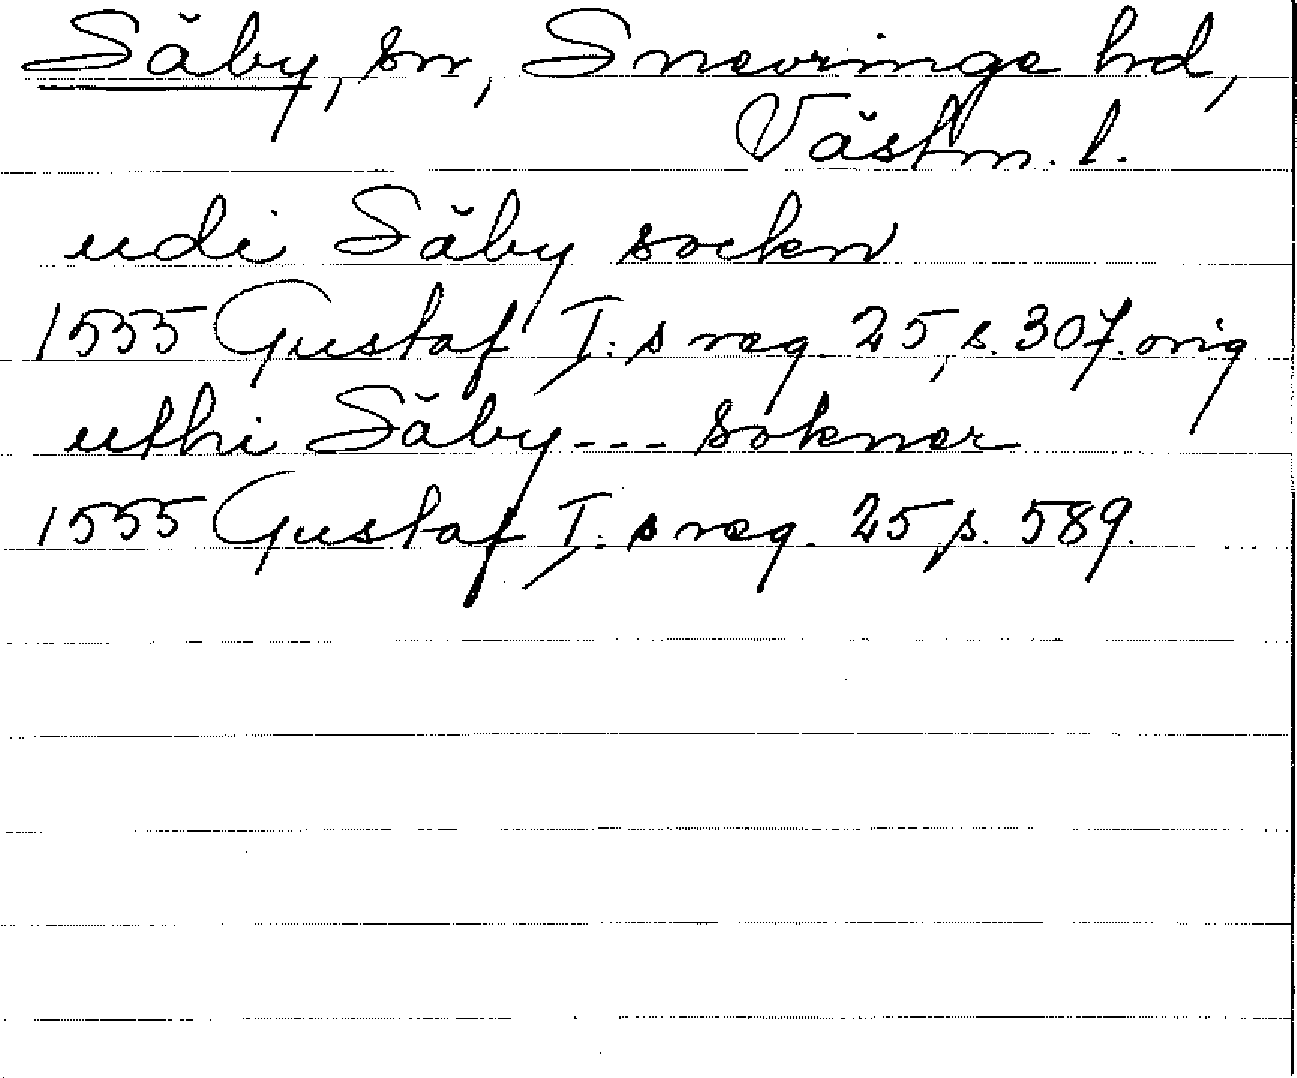 Säby, sn, Snevringe hd,
Västm. l.
udi Säby sockn
1555 Gustaf I:s reg. 25, s. 307. orig
uthi Säby --- sokner
1555 Gustaf I:s reg. 25, s. 589.